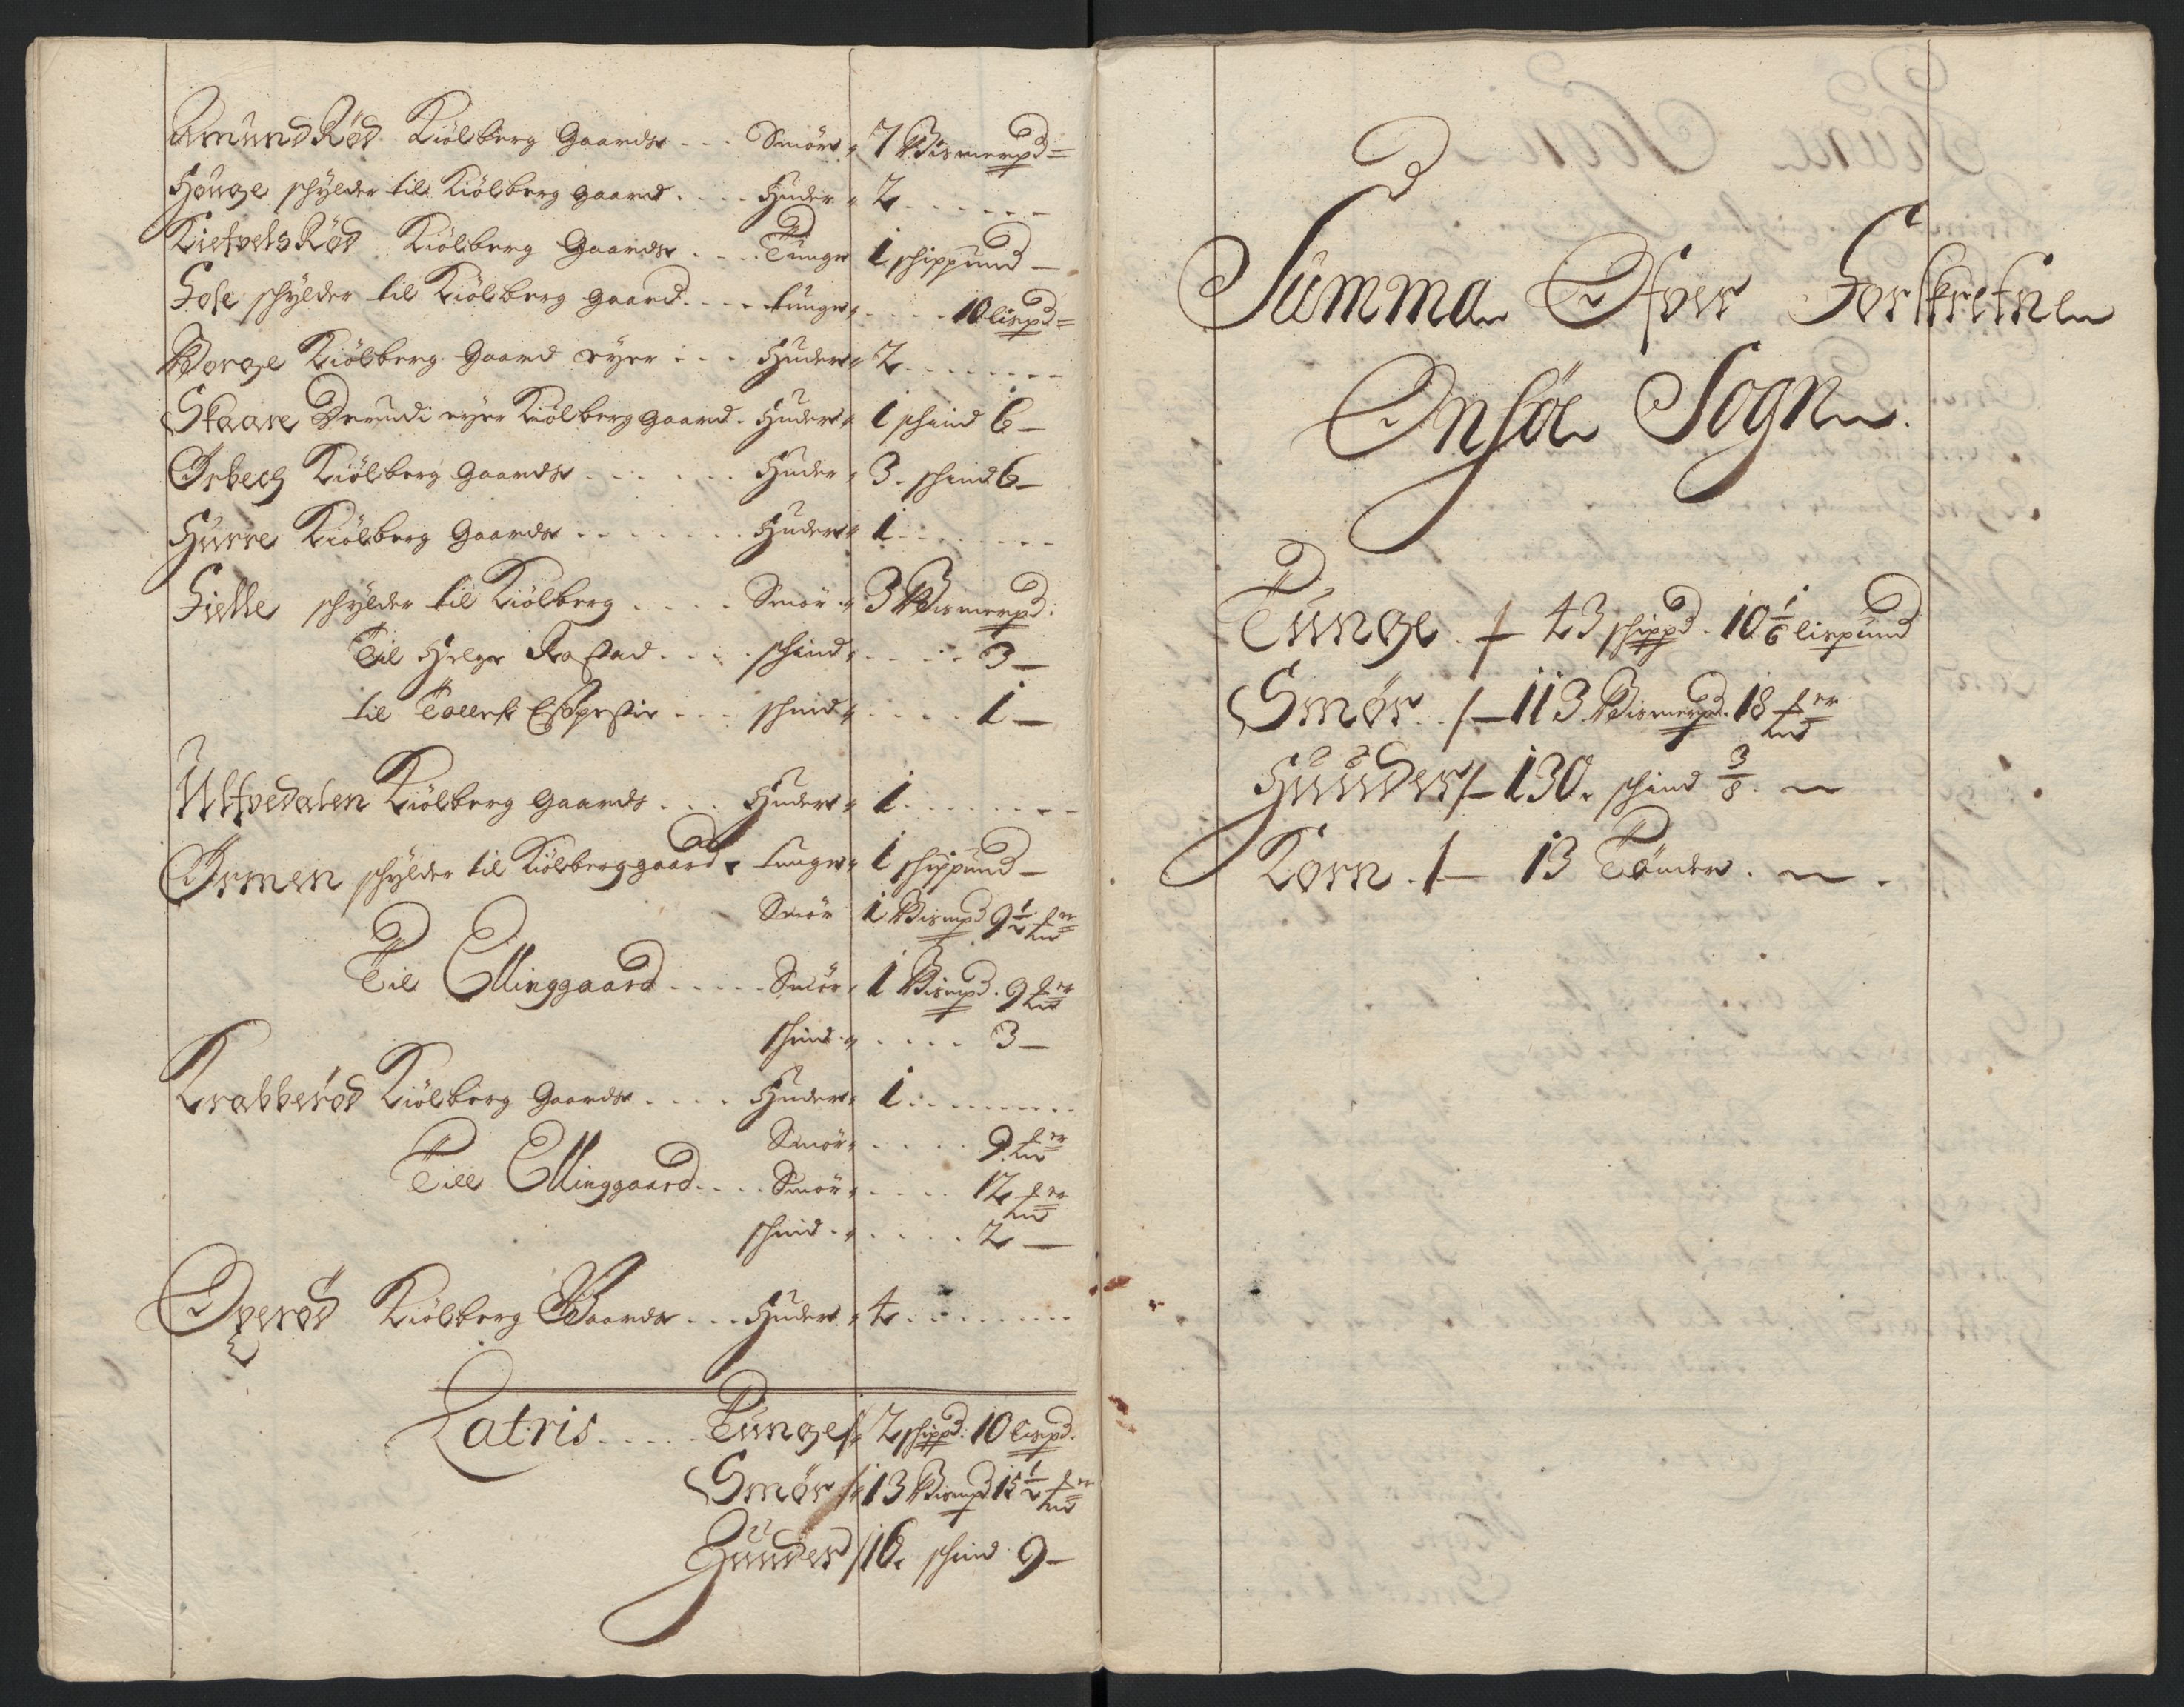 AmundRød Kiölberg Gaards - - - Smör 7 Bismerpd
Houge schylder til Kiölberg gaard . . . . Huder 2
KietvelsRød Kiölberg Gaards . . . . Tunge 1 schippund
Fose schylder til Kiölberg gaard . . . . tunge 10 lispd
Borge Kiölberg Gaard eyer . . . Huder 2
Skaare Derudi eyer Kiölberg gaard . Huder 1 schind 6
Kiölberg Gaards . . . . . . Huder 3 . schind 6
Kiölberg Gaards . . . . . . . Huder 1
Fielle schylder til Kiölberg . . . . Smör 3 Bismerpd:
Til Helge . . . . schind 3
til . . . schind 1
Ulfvedalen Kiölberg Gaards . . . Huder 1
Ormen schylder til Kiölberggaard . tunge 1 schippund
Smör 1 Bismpd 9 1/2
Til Ellinggaard . . . . . Smör 1 Bismpd . 9
schind 3
Krabberød Kiölberg Gaards . . . . Huder 1
Smör 9
Till Ellinggaard . . . . Smör 12
schind 2
Overød Kiölberg Gaards . . . Huder 4
Latris . . . . . Tunge 2 schippd: 10 lispd.
Smør 13 Bismpd 15 1/2
Huuder 16. schind 9
Summa Ofver Forskrefne
Onsöe Sogn.
Tunge . 43 schippd . 10 1/6 lispund
Smør . . 113 Bismerpd . 18
Huuder 130. schind 3/8 .
Korn . 13 Tönder .